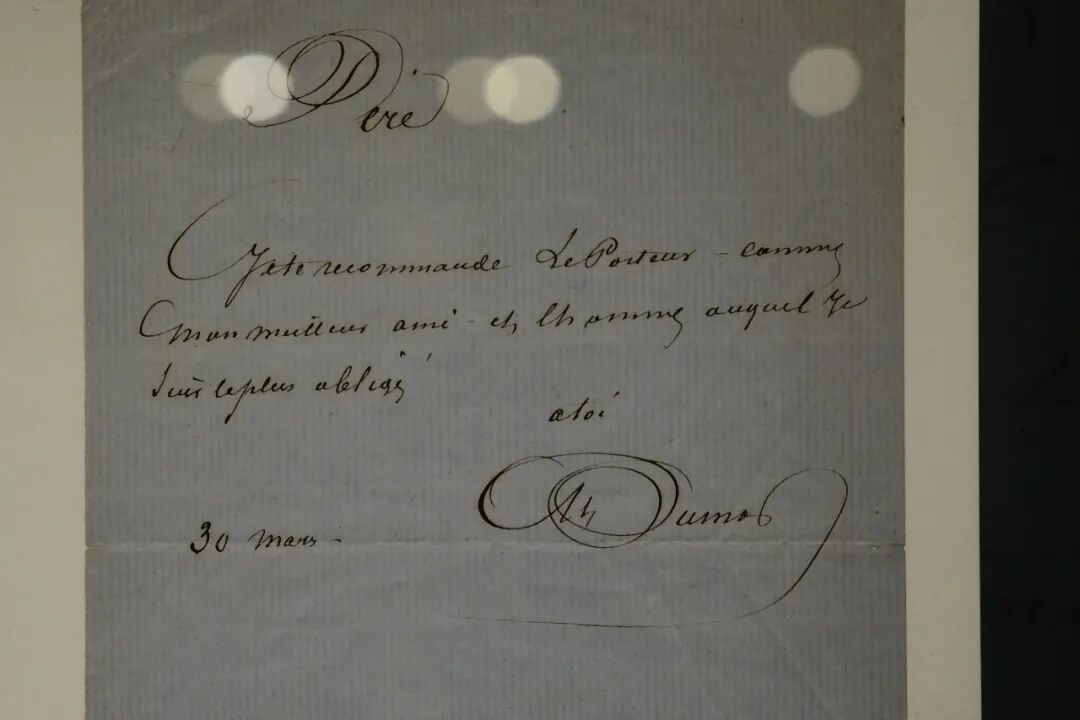 Père
Je te recommande Le Porteur - comme
mon meilleur ami - et lhomme auquel Je
suis le plus obligé
a toi
Dumas
30 mars -